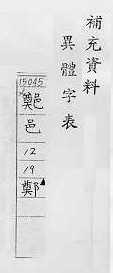 補充資料
異體字表
15045
鄭
邑
12
19
鄭